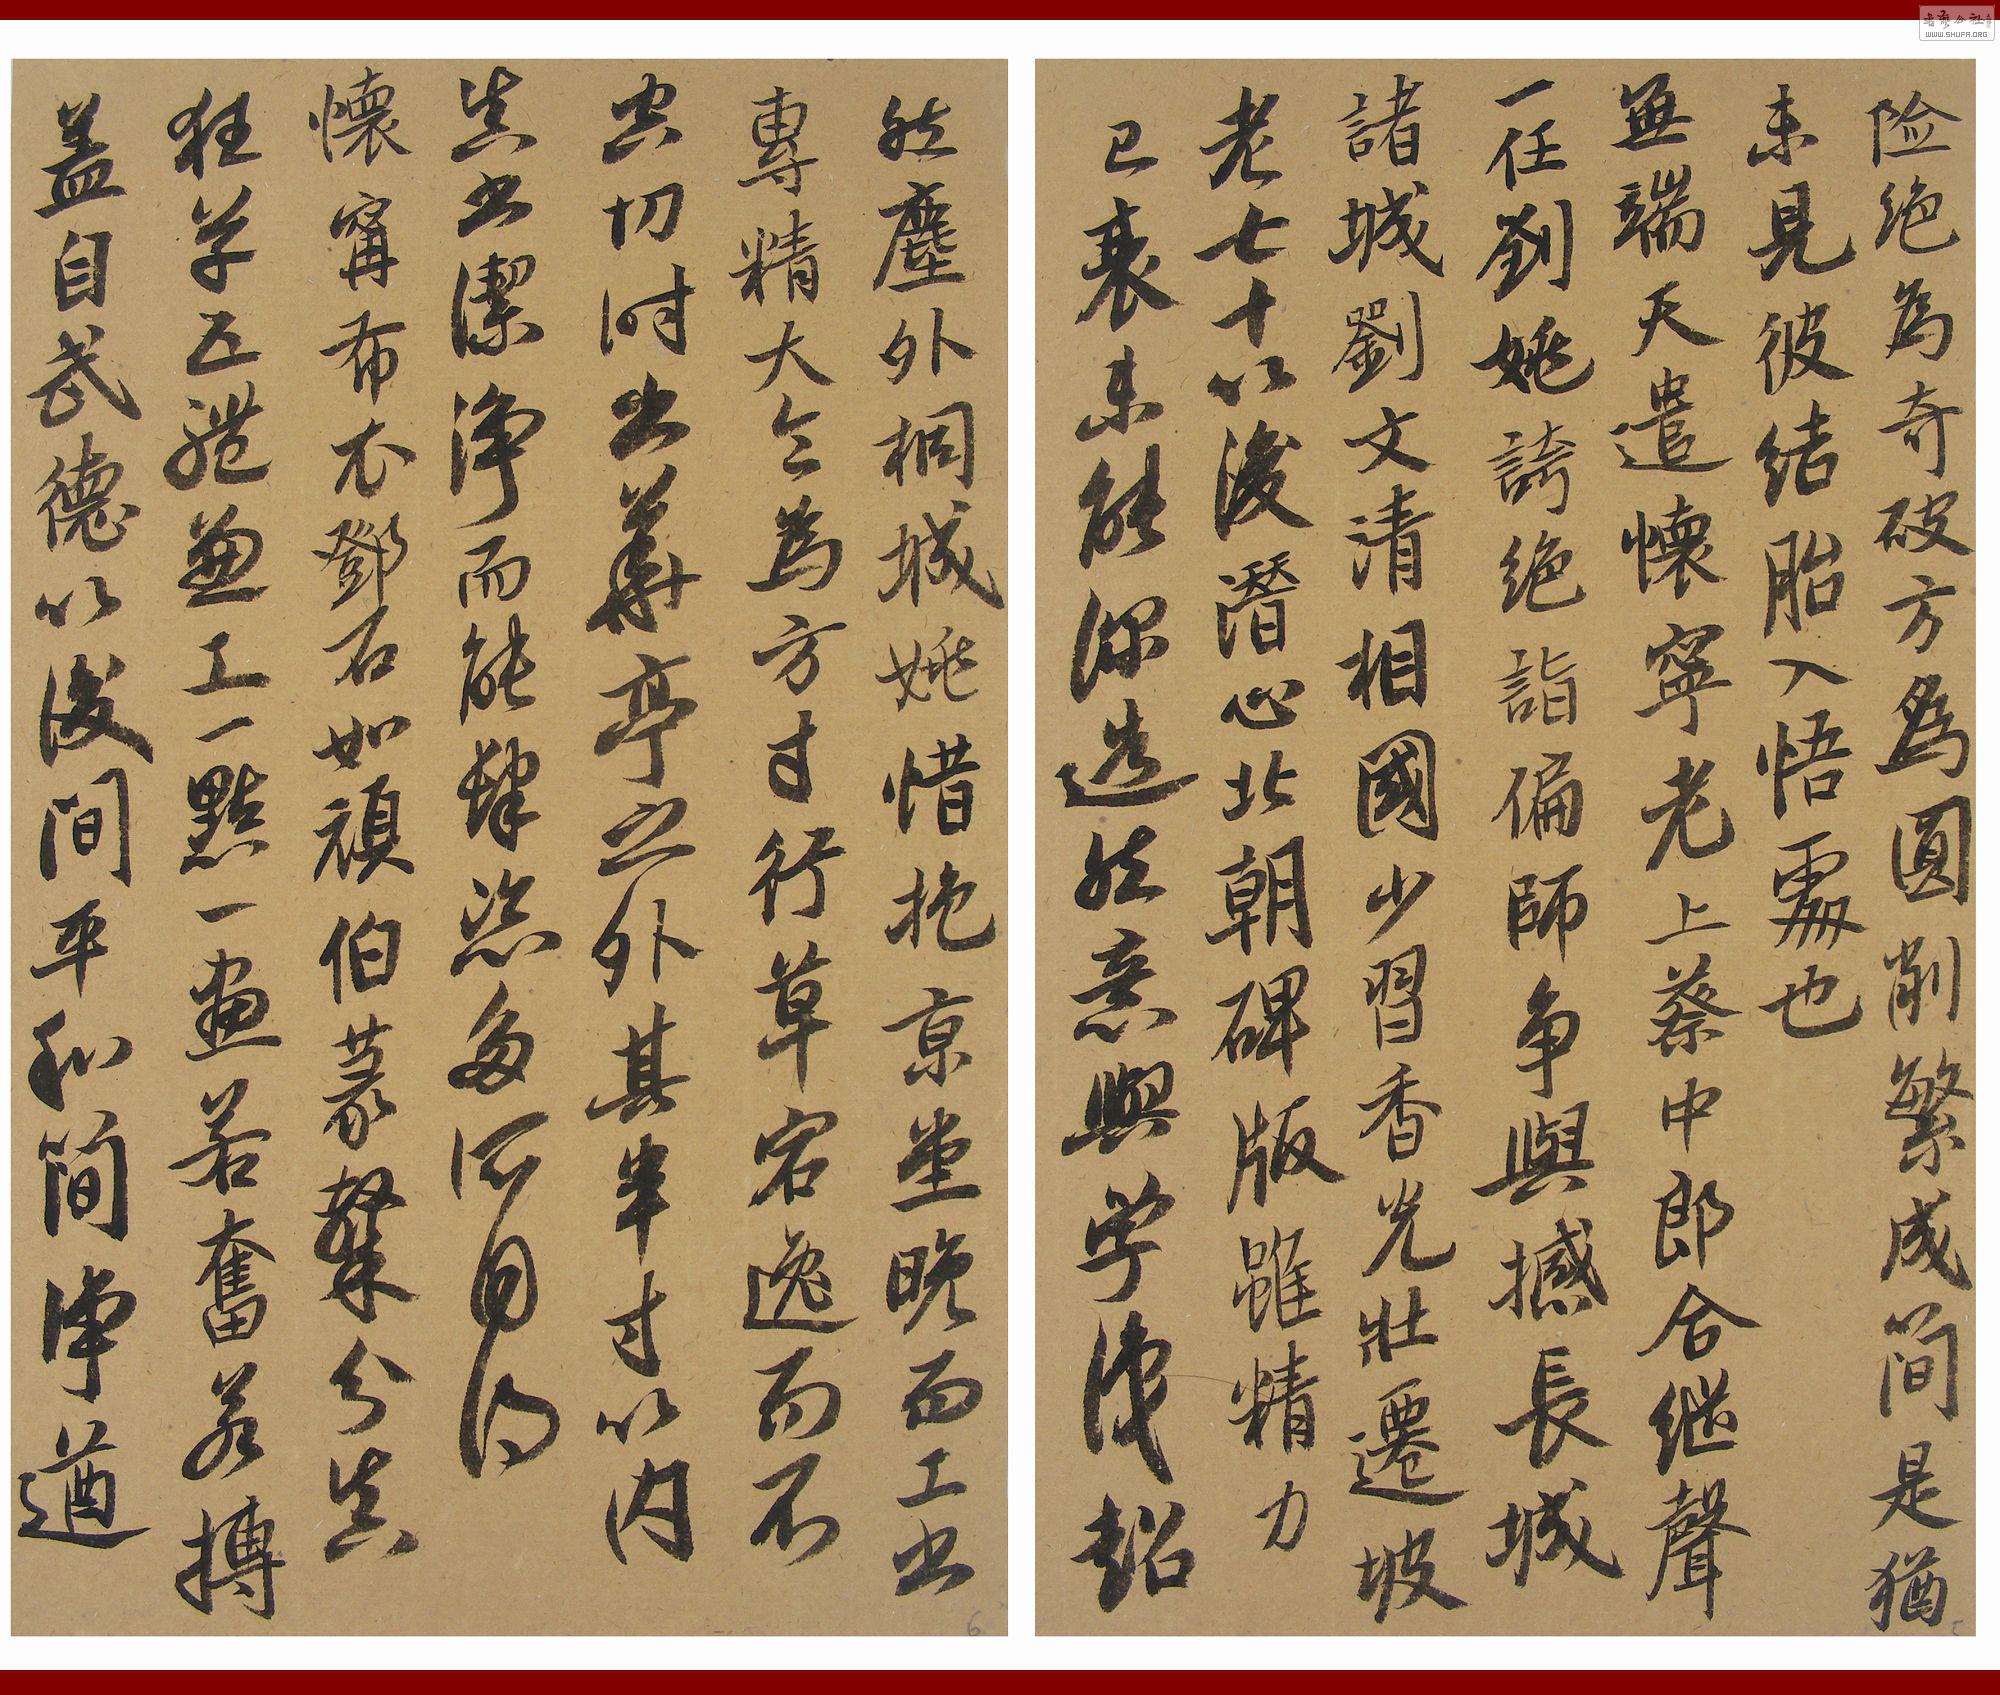 险绝為奇破方為圓削繁成简是猶
未見彼结胎入悟處也
無端天遣懷寧老上蔡中郎合继聲
一任劉姚誇绝詣偏師争與撼長城
諸城劉文清相國少習香光壯遷坡
老七十以後潛心北朝碑版雖精力
已衰未能深造然意興学識超
然塵外桐城姚惜抱京堂晚而工书
專精大令為方寸行草宕逸而不
空切时出華亭之外其半寸以内
真书潔净而能肆恣多所自得
懷甯布衣鄧石如頑伯篆隸分真
狂草五體兼工一點一畫若奮若搏
盖自武德以後间平和简净遒
書藝公社
WWW.SHUFA.ORG
6